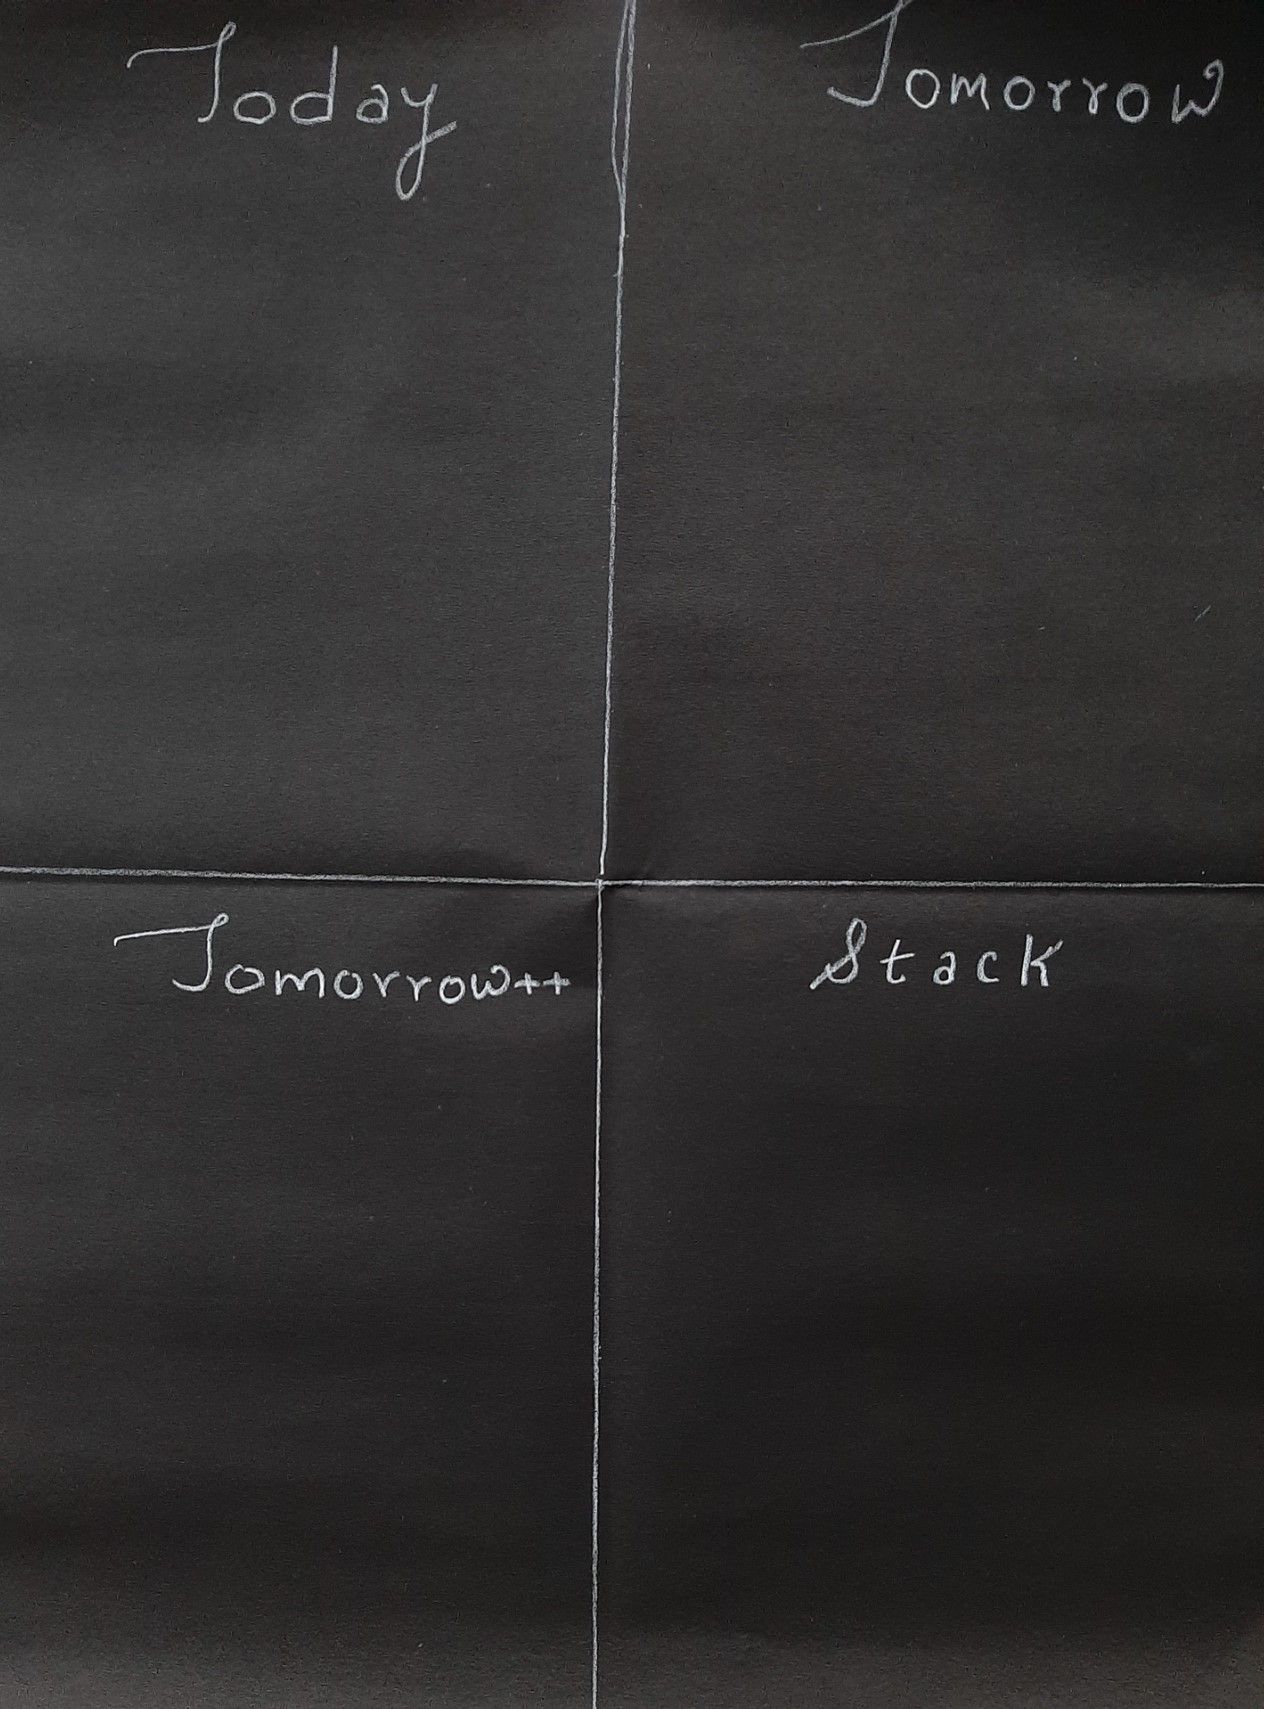 Today
Tomorrow
Tomorrow++
Stack